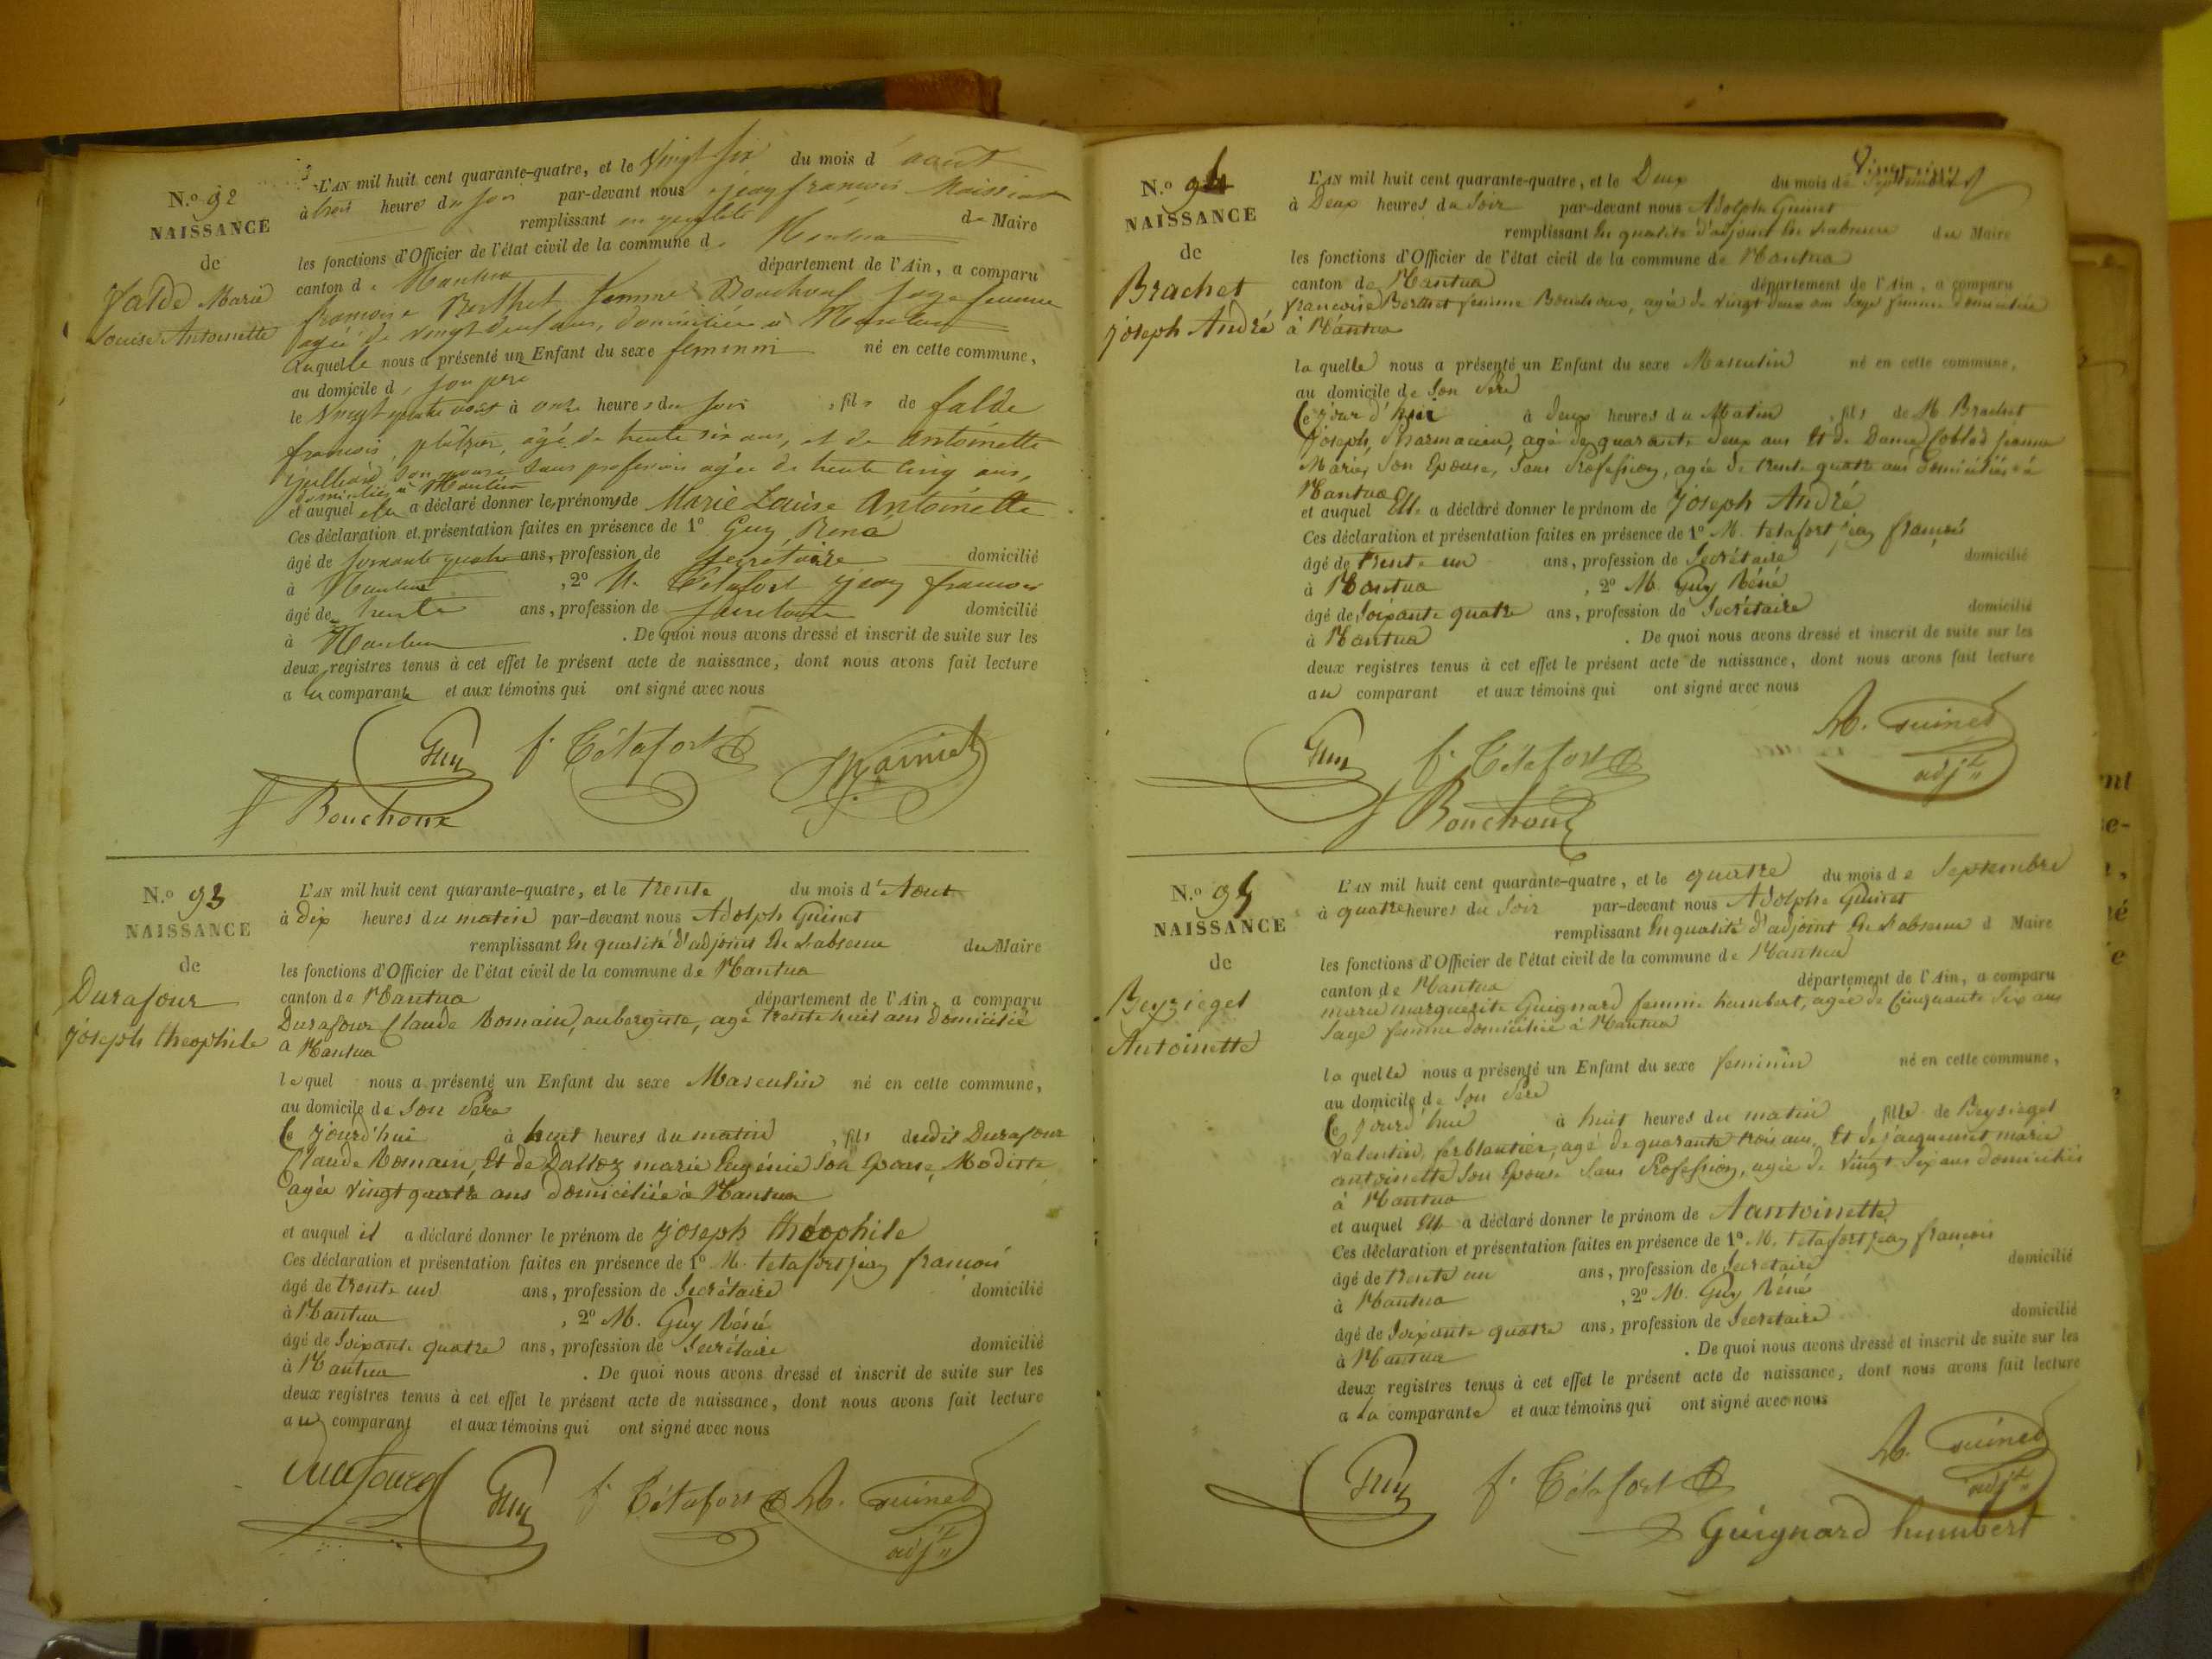 N.o 92
NAISSANCE
de
falde Marie
Louise Antoinette
L'AN mil huit cent quarante-quatre, et le Vingt Six du mois d'aout
à trois heures du soir par-devant nous jean françois Maissiat
remplissant en qualité de Maire
les fonctions d'Officier de l'état civil de la commune de Mantua
canton de Mantua département de l'Ain, a comparu
françoise Berthet femme Bouchoux, sage femme
agée de vingt deux ans, domiciliée à Mantua
laquelle nous a présenté un Enfant du sexe feminin né en cette commune,
au domicile de son père
le vingt quatre aout à onze heures du soir, fils de falde
françois, plâtrier, âgé de trente six ans, et de antoinette
son épouse sans profession agée de trente cinq ans,
domiciliés à Mantua
et auquel elle a déclaré donner les prénoms de Marie Louise Antoinette
Ces déclaration et présentation faites en présence de 1o Guy René
âgé de soixante quatre ans, profession de secretaire domicilié
à Mantua, 2o M. Tétafort jean françois
âgé de trente ans, profession de secretaire domicilié
à Mantua. De quoi nous avons dressé et inscrit de suite sur les
deux registres tenus à cet effet le présent acte de naissance, dont nous avons fait lecture
a la comparante et aux témoins qui ont signé avec nous
Guy f. Tétafort
f Bouchoux
N.o 93
NAISSANCE
de
Durafour
joseph theophile
L'AN mil huit cent quarante-quatre, et le trente du mois d'Aout
à dix heures du matin par-devant nous Adolphe Guinet
remplissant En qualité d'adjoint En L'absence du Maire
les fonctions d'Officier de l'état civil de la commune de Mantua
canton de Mantua département de l'Ain, a comparu
Durafour Claude Romain, aubergiste, agé trente huit ans domicilié
a Mantua
lequel nous a présenté un Enfant du sexe Masculin né en cette commune,
au domicile de Son Père
Ce jourd'hui à huit heures du matin, fils dudit Durafour
Claude Romain, Et de Dalloz marie Eugénie Son Epouse, Modiste
agée vingt quatre ans domiciliée à Mantua
et auquel il a déclaré donner le prénom de joseph théophile
Ces déclaration et présentation faites en présence de 1o M. tetafort jean françois
âgé de trente un ans, profession de Secrétaire domicilié
à Mantua, 2o M. Guy Réné
âgé de Soixante quatre ans, profession de Secrétaire domicilié
à Mantua. De quoi nous avons dressé et inscrit de suite sur les
deux registres tenus à cet effet le présent acte de naissance, dont nous avons fait lecture
au comparant et aux témoins qui ont signé avec nous
Durafour Guy f. Tétafort A. Guinet
adjt
N.o 94
NAISSANCE
de
Brachet
joseph André
L'AN mil huit cent quarante-quatre, et le Deux du mois de Septembre
à Deux heures du Soir par-devant nous Adolphe Guinet
remplissant En qualité d'adjoint En L'absence du Maire
les fonctions d'Officier de l'état civil de la commune de Mantua
canton de Mantua département de l'Ain, a comparu
françoise Berthet femme Bouchoux, agée de vingt deux ans Sage femme domiciliée
à Mantua
laquelle nous a présenté un Enfant du sexe Masculin né en cette commune,
au domicile de Son Père
Ce jour d'hui à deux heures du Matin, fils de M. Brachet
joseph, Pharmacien, agé de quarante deux ans Et de Dame jeanne
Marie, Son Epouse, Sans Profession, agée de trente quatre ans domiciliés à
Mantua
et auquel Elle a déclaré donner le prénom de joseph André
Ces déclaration et présentation faites en présence de 1o M. tetafort jean françois
âgé de trente un ans, profession de Secrétaire domicilié
à Mantua, 2o M. Guy Réné
âgé de Soixante quatre ans, profession de Secrétaire domicilié
à Mantua. De quoi nous avons dressé et inscrit de suite sur les
deux registres tenus à cet effet le présent acte de naissance, dont nous avons fait lecture
au comparant et aux témoins qui ont signé avec nous
Guy f. Tétafort A. Guinet
f Bouchoux adjt
N.o 95
NAISSANCE
de
Beyziegel
Antoinette
L'AN mil huit cent quarante-quatre, et le quatre du mois de Septembre
à quatre heures du Soir par-devant nous Adolphe Guinet
remplissant En qualité d'adjoint En L'absence d Maire
les fonctions d'Officier de l'état civil de la commune de Mantua
canton de Mantua département de l'Ain, a comparu
marie marguerite Guignard femme humbert, agée de Cinquante Six ans
Sage femme domiciliée à Mantua
laquelle nous a présenté un Enfant du sexe feminin né en cette commune,
au domicile de Son Père
Ce jourd'hui à huit heures du matin, fille de Beysiegel
Valentin, ferblantier, agé de quarante trois ans, Et de jacquemet marie
antoinette Son Epouse Sans Profession, agée de Vingt Six ans domiciliés
à Mantua
et auquel Elle a déclaré donner le prénom de Aantoinette
Ces déclaration et présentation faites en présence de 1o M. tetafort jean françois
âgé de trente un ans, profession de Secretaire domicilié
à Mantua, 2o M. Guy Réné
âgé de Soixante quatre ans, profession de Secretaire domicilié
à Mantua. De quoi nous avons dressé et inscrit de suite sur les
deux registres tenus à cet effet le présent acte de naissance, dont nous avons fait lecture
a la comparante et aux témoins qui ont signé avec nous
Guy f. Tétafort A. Guinet
adjt
Guignard humbert